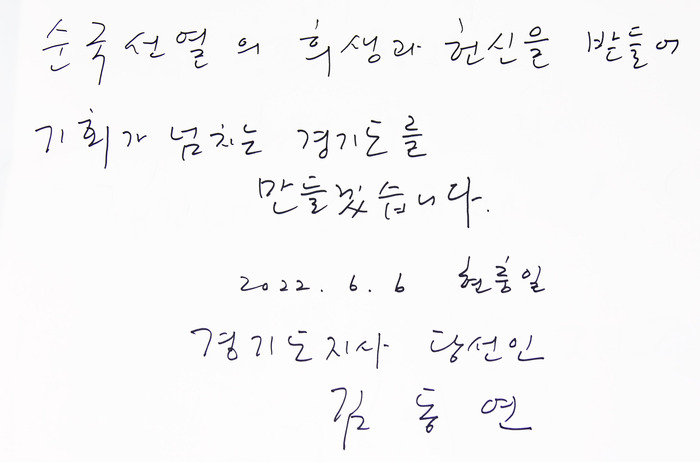 순국선열의 희생과 헌신을 받들어
기회가 넘치는 경기도를
만들겠습니다.
2022. 6. 6 현충일
경기도지사 당선인
김동연